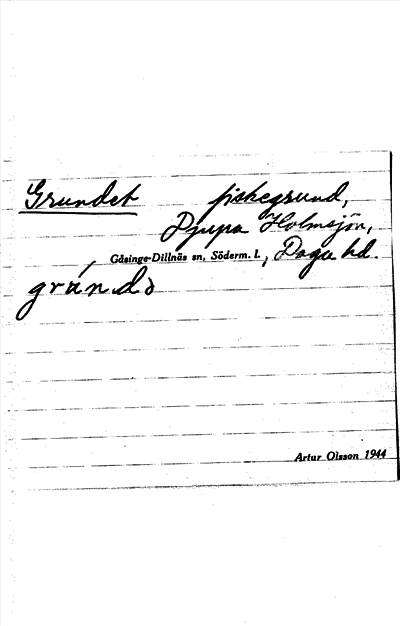 Grundet fiskegrund,
Djupa Holmsjön,
Gåsinge-Dillnäs sn, Söderm. l., Daga hd.
grúndə
Artur Olsson 1944